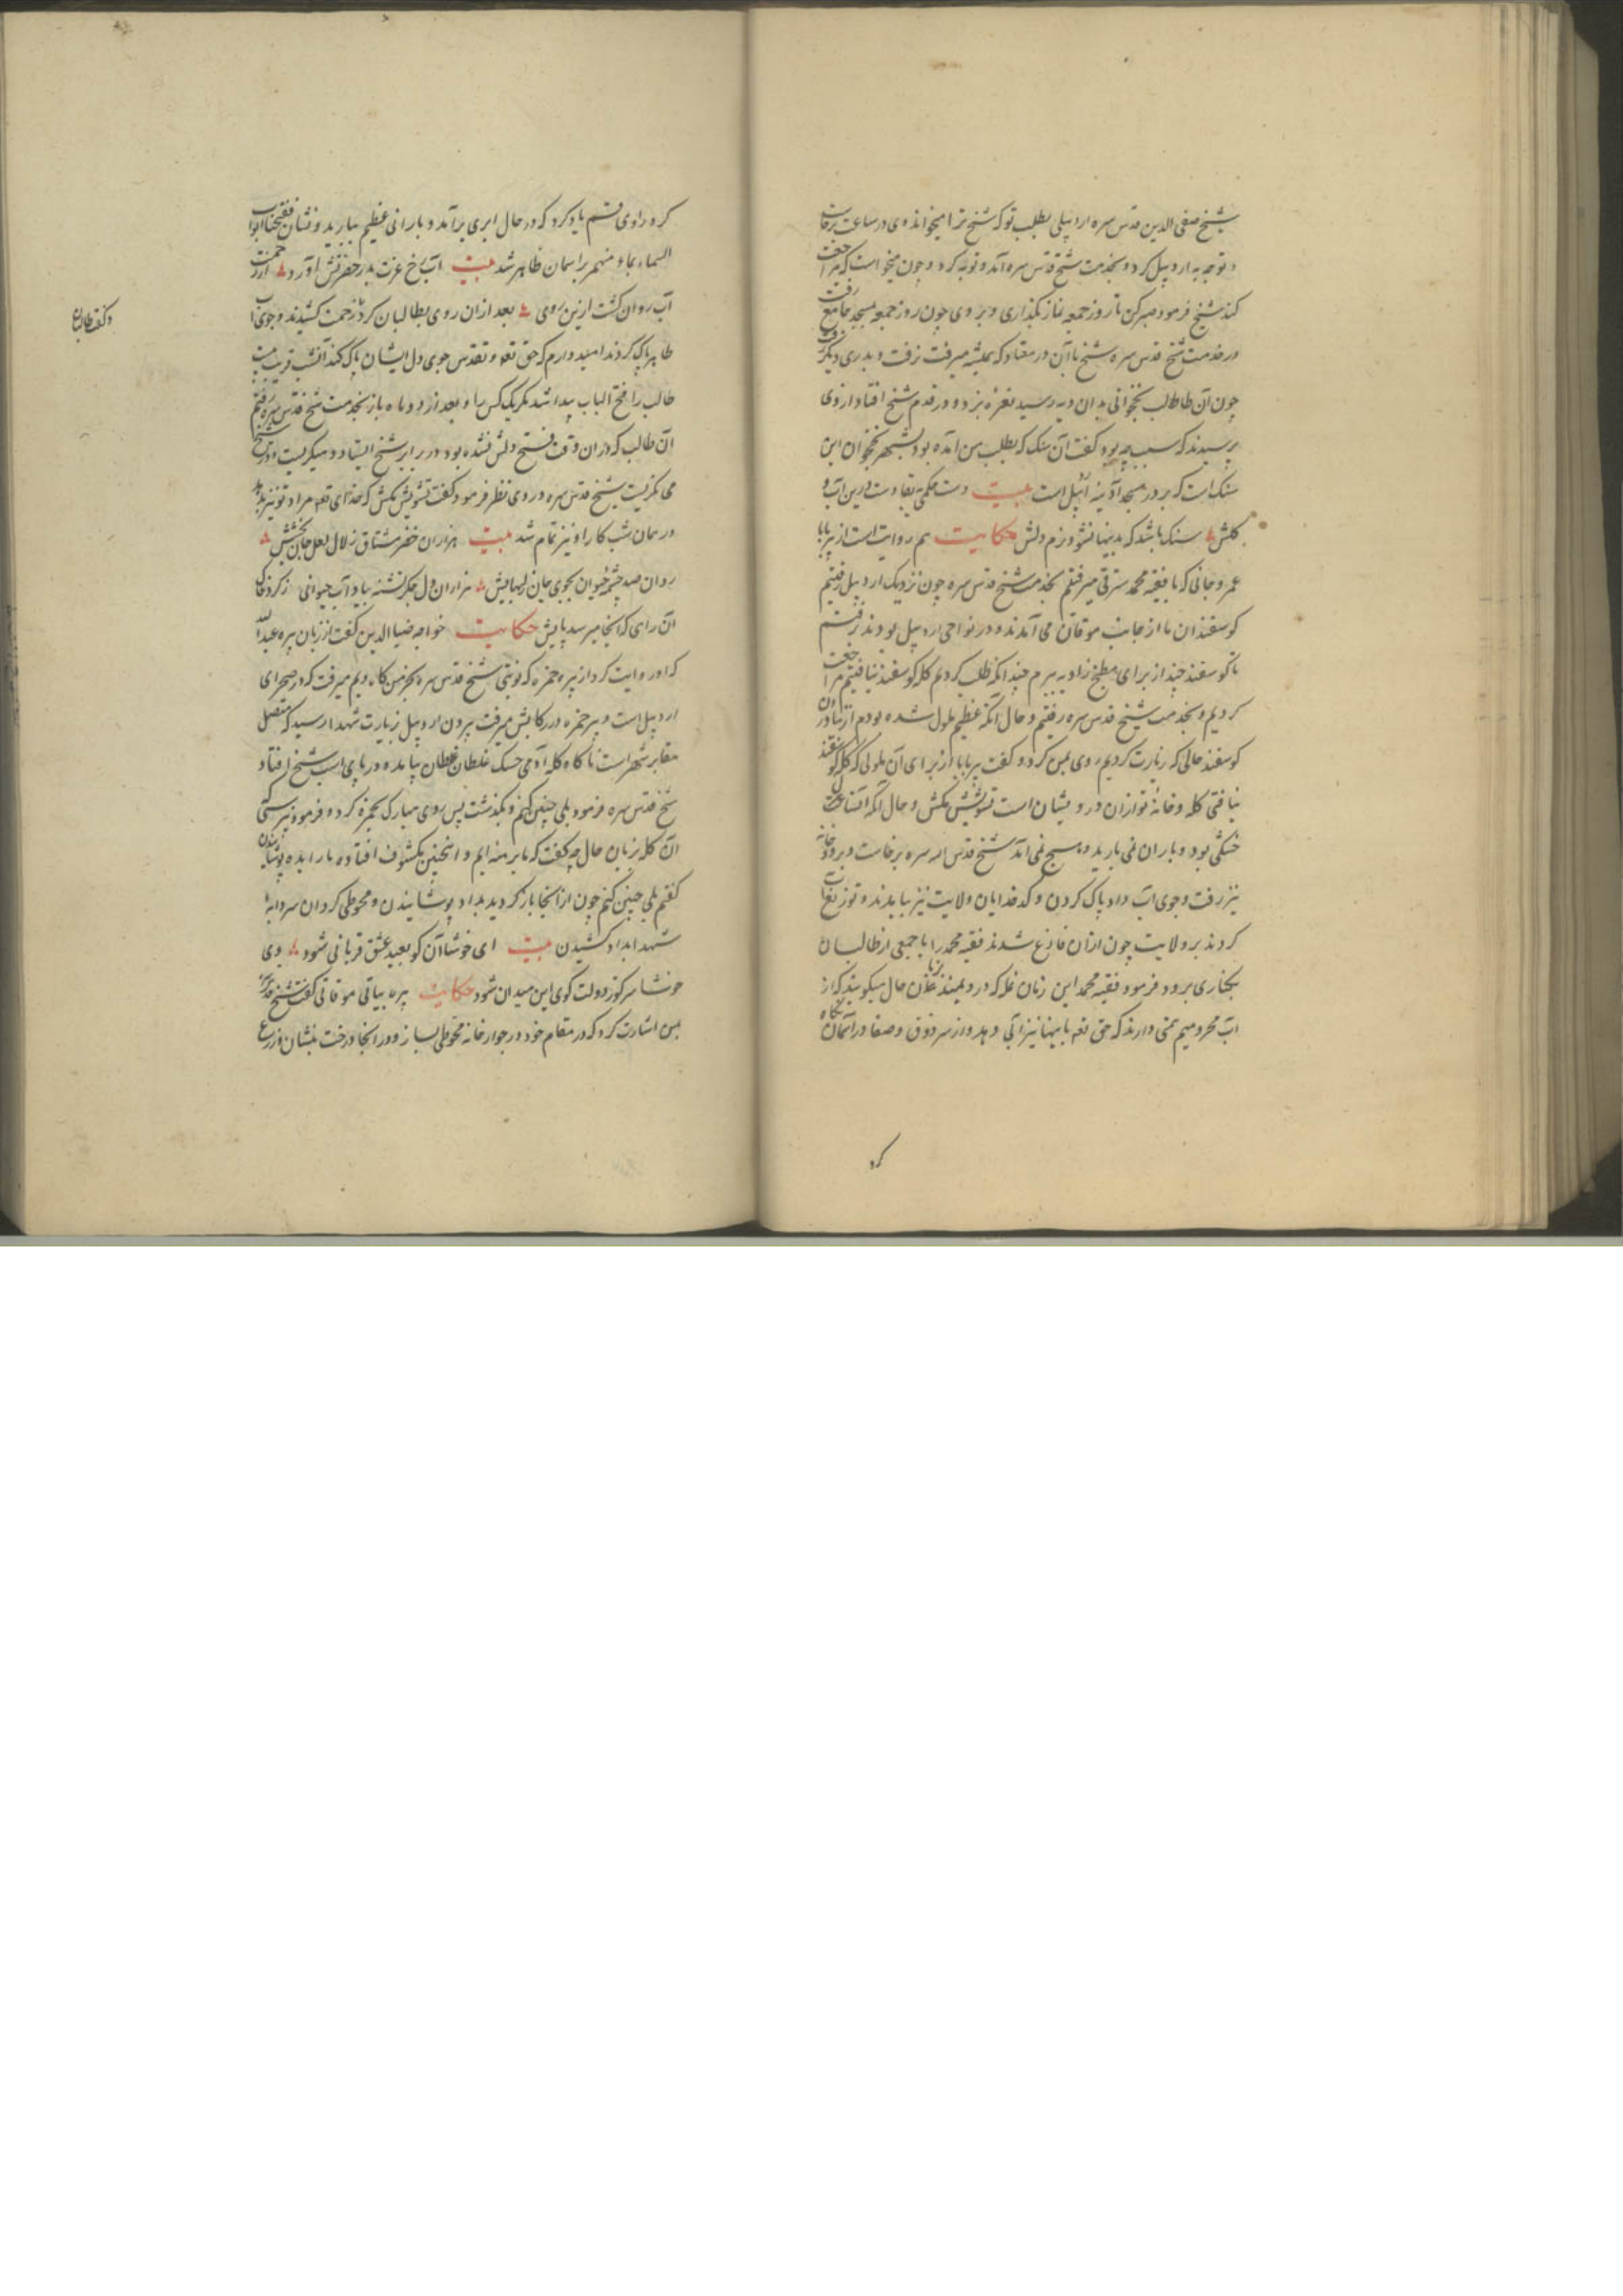 شیخ صفی الدین قدس سره اردبیلی بطلب تو که شیخ ترا میخواند وی در ساعت برخاست
و توجه به اردبیل کرد و بخدمت شیخ قدس سره آمد و توبه کرد و چون میخواست که مراجعت
کند شیخ فرمود صبر کن تا روز جمعه نماز بگذاری و بروی چون روز جمعه بمسجد جامع رفت
در خدمت شیخ قدس سره شیخ با آن در معتاد که همیشه میرفت نرفت و بدری دیگر رفت
چون آن طالب نخجوانی بدان در رسید نعره بزد و در قدم شیخ افتاد از وی
پرسیدند که سبب چه بود گفت آن سنک که بطلب من آمده بود بشهر نخجوان این
سنک است که بر در مسجد آدینه اردبیل است بیت دست درین آب و
کلش سنک باشد که بدینها نشود نرم دلش حکایت هم روایت است از پیر بابا
عمر وجانی که با فقیه محمد سرقی میرفتم بخدمت شیخ قدس سره چون نزدیک اردبیل رفتیم
کوسفندان ما از جانب موقان می آمدند و در نواحی اردبیل بودند رفتیم
تا کوسفند چند از برای مطبخ زاویه ببرم چندانکه طلب کردیم کله کوسفند نیافتیم مراجعت
کردیم و بخدمت شیخ قدس سره رفتیم و حال آنکه عظیم ملول شده بودم از نیافتن
کوسفند حالی که زیارت کردیم روی بمن کرد و گفت پیر بابا از برای آن ملولی که کله کوسفند
نیافتی کله و خانهٔ تو ازان درویشان است تشویش مکش و حال آنکه آن ساعت
خشکی بود و باران نمی بارید و هیچ نمی آمد شیخ قدس الله سره برخاست و برودخانه
نیز رفت و جوی آب داد پاک کردن و کدخدایان ولایت نیز بیامدند و توزیعات
کردند بر ولایت چون ازان فارغ شدند فقیه محمد را با جمعی از طالبان
بکناری برد و فرمود فقیه محمد این زمان غله که درو میکنند بزبان حال میکویند که از
آب محرومیم تمنی دارند که حق تعه باینها نیز آبی دهد و از سر ذوق و صفا در آسمان نکاه
کرد
کرد راوی قسم یاد کرد که در حال ابری برآمد و بارانی عظیم ببارید و نشان ففتحنا ابواب
السماء بماء منهمر بر آسمان ظاهر شد بیت آب رخ عزت بدر حضرتش آورد از رحمت
آب روان کشت ازین روی بعد ازان روی بطالبان کرد زحمت کشیدند و جوی آب
ظاهر پاک کردند امیدوارم که حق تعه و تقدس جوی دل ایشان پاک کند آنشب قریب بیست
طالب را فتح الباب پیدا شد مکر یک کس را و بعد از دو ماه باز بخدمت شیخ قدس سره رفتیم
آن طالب که دران وقت فتح دلش نشده بود در برابر شیخ ایستاد و میکریست و در شیخ
می نکریست شیخ قدس سره در وی نظر فرمود و گفت تشویش مکش که خدای تعه مراد تو نیز بدهد
در همان شب کار او نیز تمام شد بیت هزاران خضر مشتاق زلال لعل جان بخشش
روان صد چشمهٔ حیوان بجوی جان ز لبهایش هزاران دل جکر تشنه بیاد آب حیوانی
آن رای که آنجا میرسد پایش حکایت خواجه ضیا الدین گفت از زبان پیره عبد الله
که او روایت کرد از پیره حمزه که نوبتی شیخ قدس سره میرفت که در صحرای
اردبیل است و پیر حمزه در رکابش میرفت بیرون اردبیل زیارت شهدا رسید که متصل
مقابر شهر است ناکاه کله آدمی خشک غلطان غلطان بیامد و در پای اسب شیخ افتاد
شیخ قدس سره فرمود بلی چنین کنم و بگذشت پس روی مبارک بحمزه کرد و فرمود
آن کله بزبان حال چه گفت که ما برهنه ایم و اینچنین مکشوف افتاده ما را بده پوشانیدن
گفتم بلی چنین کنم چون از آنجا باز کردید بداد پوشانیدن و محوطی کرد آن سردابه
شهدا بداد کشیدن بیت ای خوشا آن کو بعید عشق قربانی شود وی
خوشا سر کوز دولت کوی این میدان شود حکایت پیره بیاتی موقانی گفت شیخ قدس سره
بمن اشارت کرد که در مقام خود در جوار خانه محوطی بساز و در آنجا درخت بنشان و زرع
و گفت طالبان